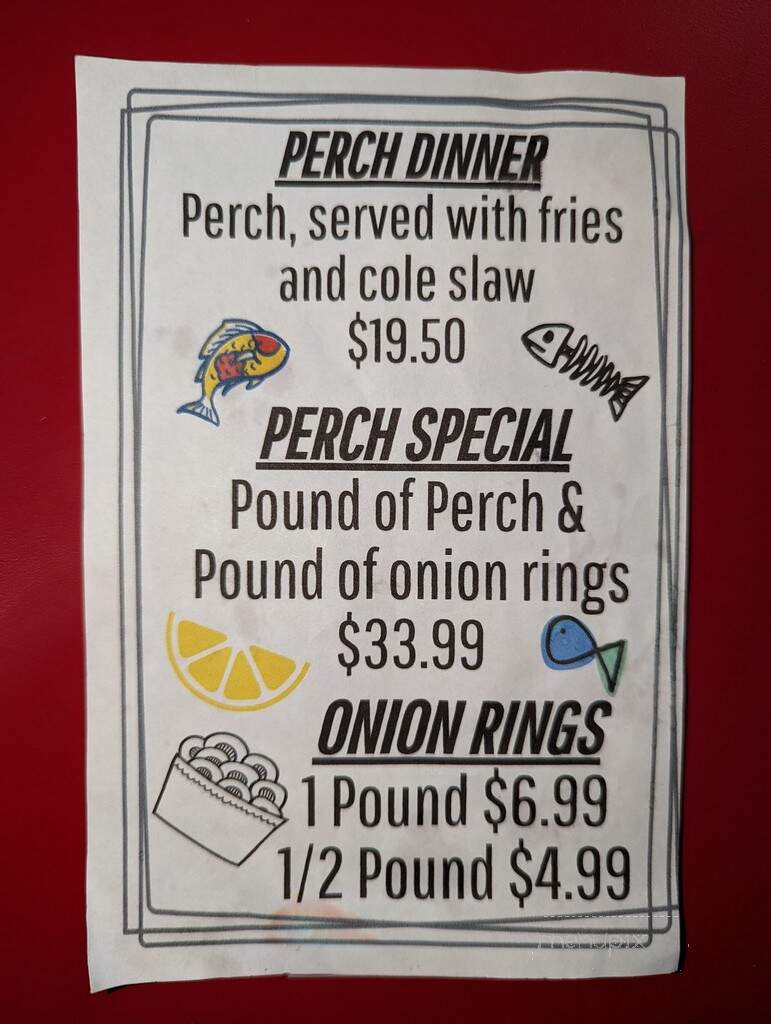 PERCH DINNER
Perch, served with fries
and cole slaw
$19.50
PERCH SPECIAL
Pound of Perch &
Pound of onion rings
$33.99
ONION RINGS
1 Pound $6.99
1/2 Pound $4.99
menupix